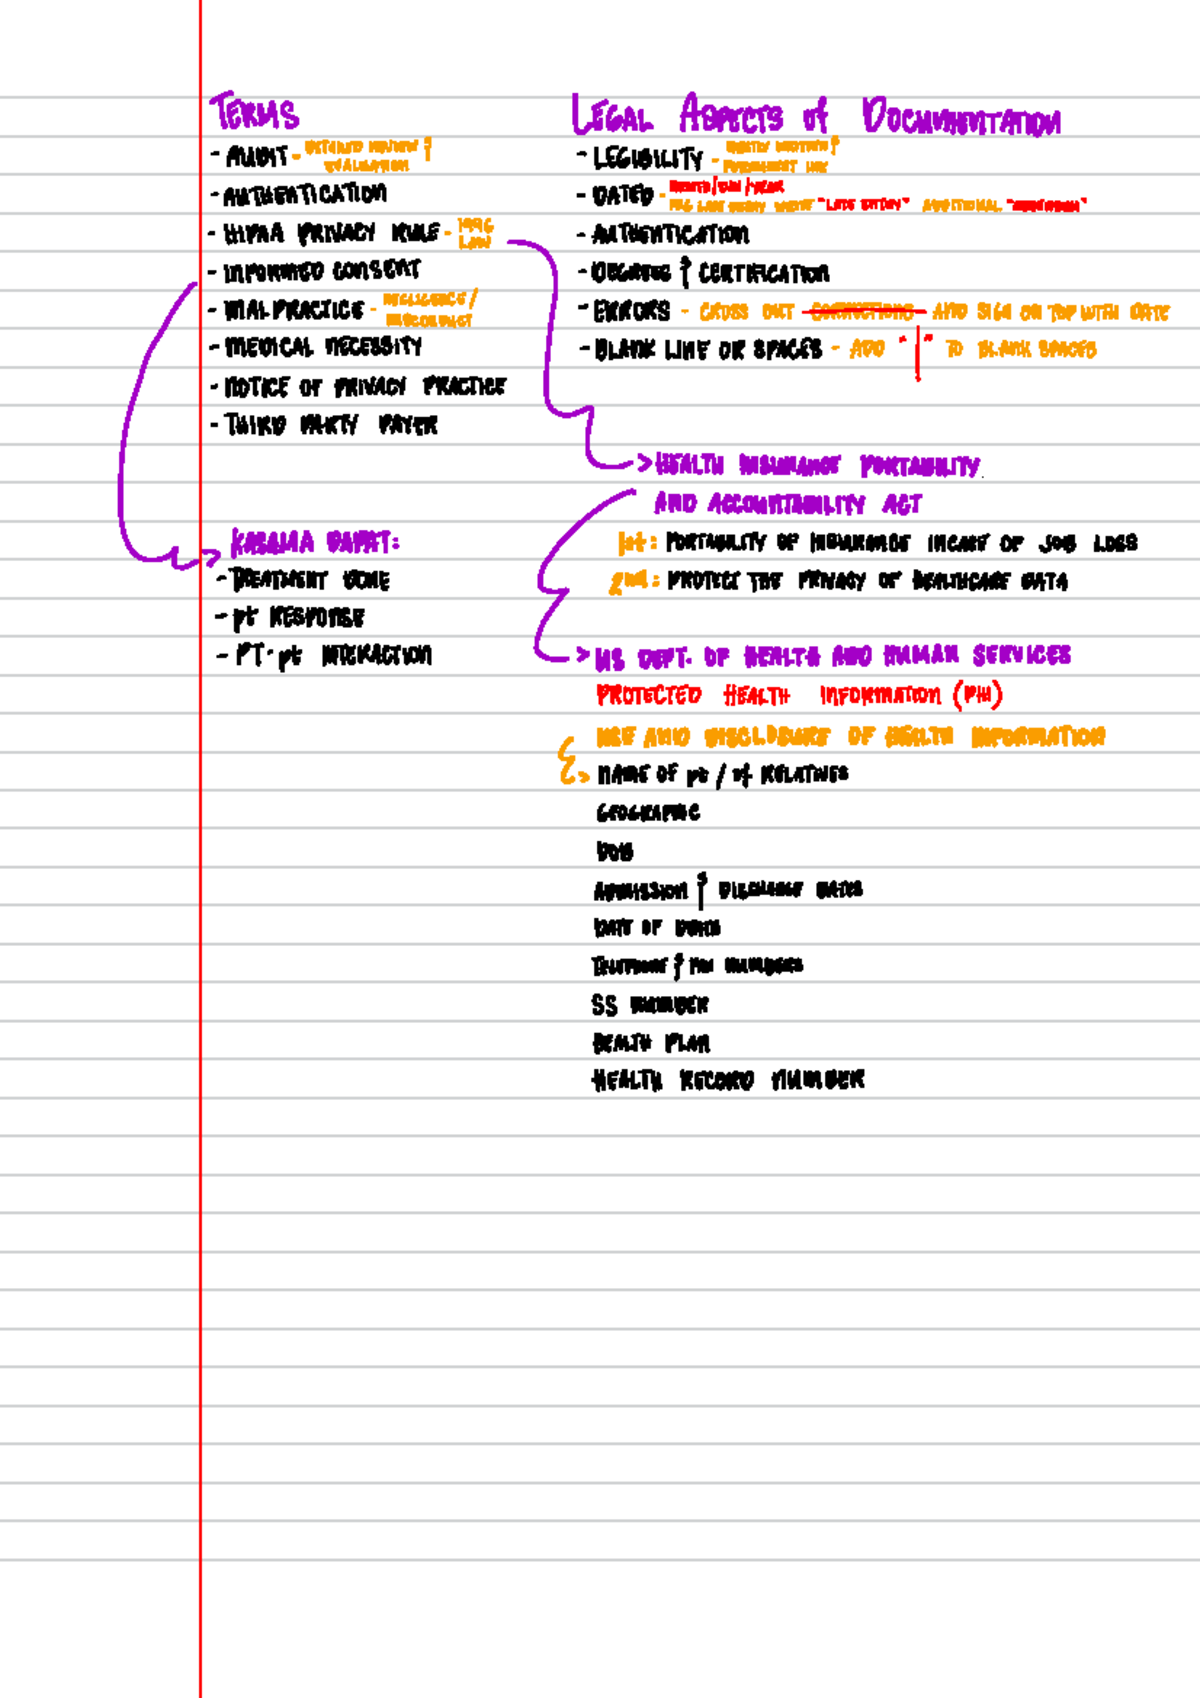 TERMS
- AUDIT - DETAILED REVIEW &
EVALUATION
- AUTHENTICATION
- HIPAA PRIVACY RULE - 1996
LAW
- INFORMED CONSENT
- MALPRACTICE - NEGLIGENCE /
MISCONDUCT
- MEDICAL NECESSITY
- NOTICE OF PRIVACY PRACTICE
- THIRD PARTY PAYER
KASAMA DAPAT:
- TREATMENT DONE
- pt RESPONSE
- PT-pt INTERACTION
LEGAL ASPECTS of DOCUMENTATION
- LEGIBILITY - WRITTEN &
PERMANENT INK
- DATED - MONTH/DAY/YEAR
LATE ENTRY WRITE "LATE ENTRY" ADDITIONAL "ADDENDUM"
- AUTHENTICATION
- DEGREE & CERTIFICATION
- ERRORS - CROSS OUT CORRECTIONS AND SIGN ON TOP WITH DATE
- BLANK LINE OR SPACES - ADD "|" TO BLANK SPACES
> HEALTH INSURANCE PORTABILITY
AND ACCOUNTABILITY ACT
1st: PORTABILITY OF INSURANCE INCASE OF JOB LOSS
2nd: PROTECT THE PRIVACY OF HEALTHCARE DATA
> US DEPT. OF HEALTH AND HUMAN SERVICES
PROTECTED HEALTH INFORMATION (PHI)
USE AND DISCLOSURE OF HEALTH INFORMATION
NAME OF pt / of RELATIVES
GEOGRAPHIC
DOB
ADMISSION & DISCHARGE DATES
DATE OF DEATH
TELEPHONE & FAX NUMBERS
SS NUMBER
HEALTH PLAN
HEALTH RECORD NUMBER